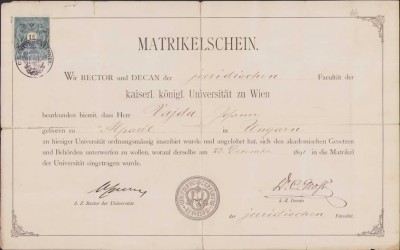 MATRIKELSCHEIN.
Wir RECTOR und DECAN der juridischen Facultät der
kaiserl. königl. Universität zu Wien
beurkunden hiemit, dass Herr Vajda Johann
geboren zu in Ungarn
an hiesiger Universität ordnungsmässig inscribirt wurde und angelobet hat, sich den akademischen Gesetzen
und Behörden unterordnen zu wollen, worauf derselbe am 20. December 1891 in die Matrikel
der Universität eingetragen wurde.
d. Z. Rector der Universität
d. Z. Decan
der juridischen Facultät.